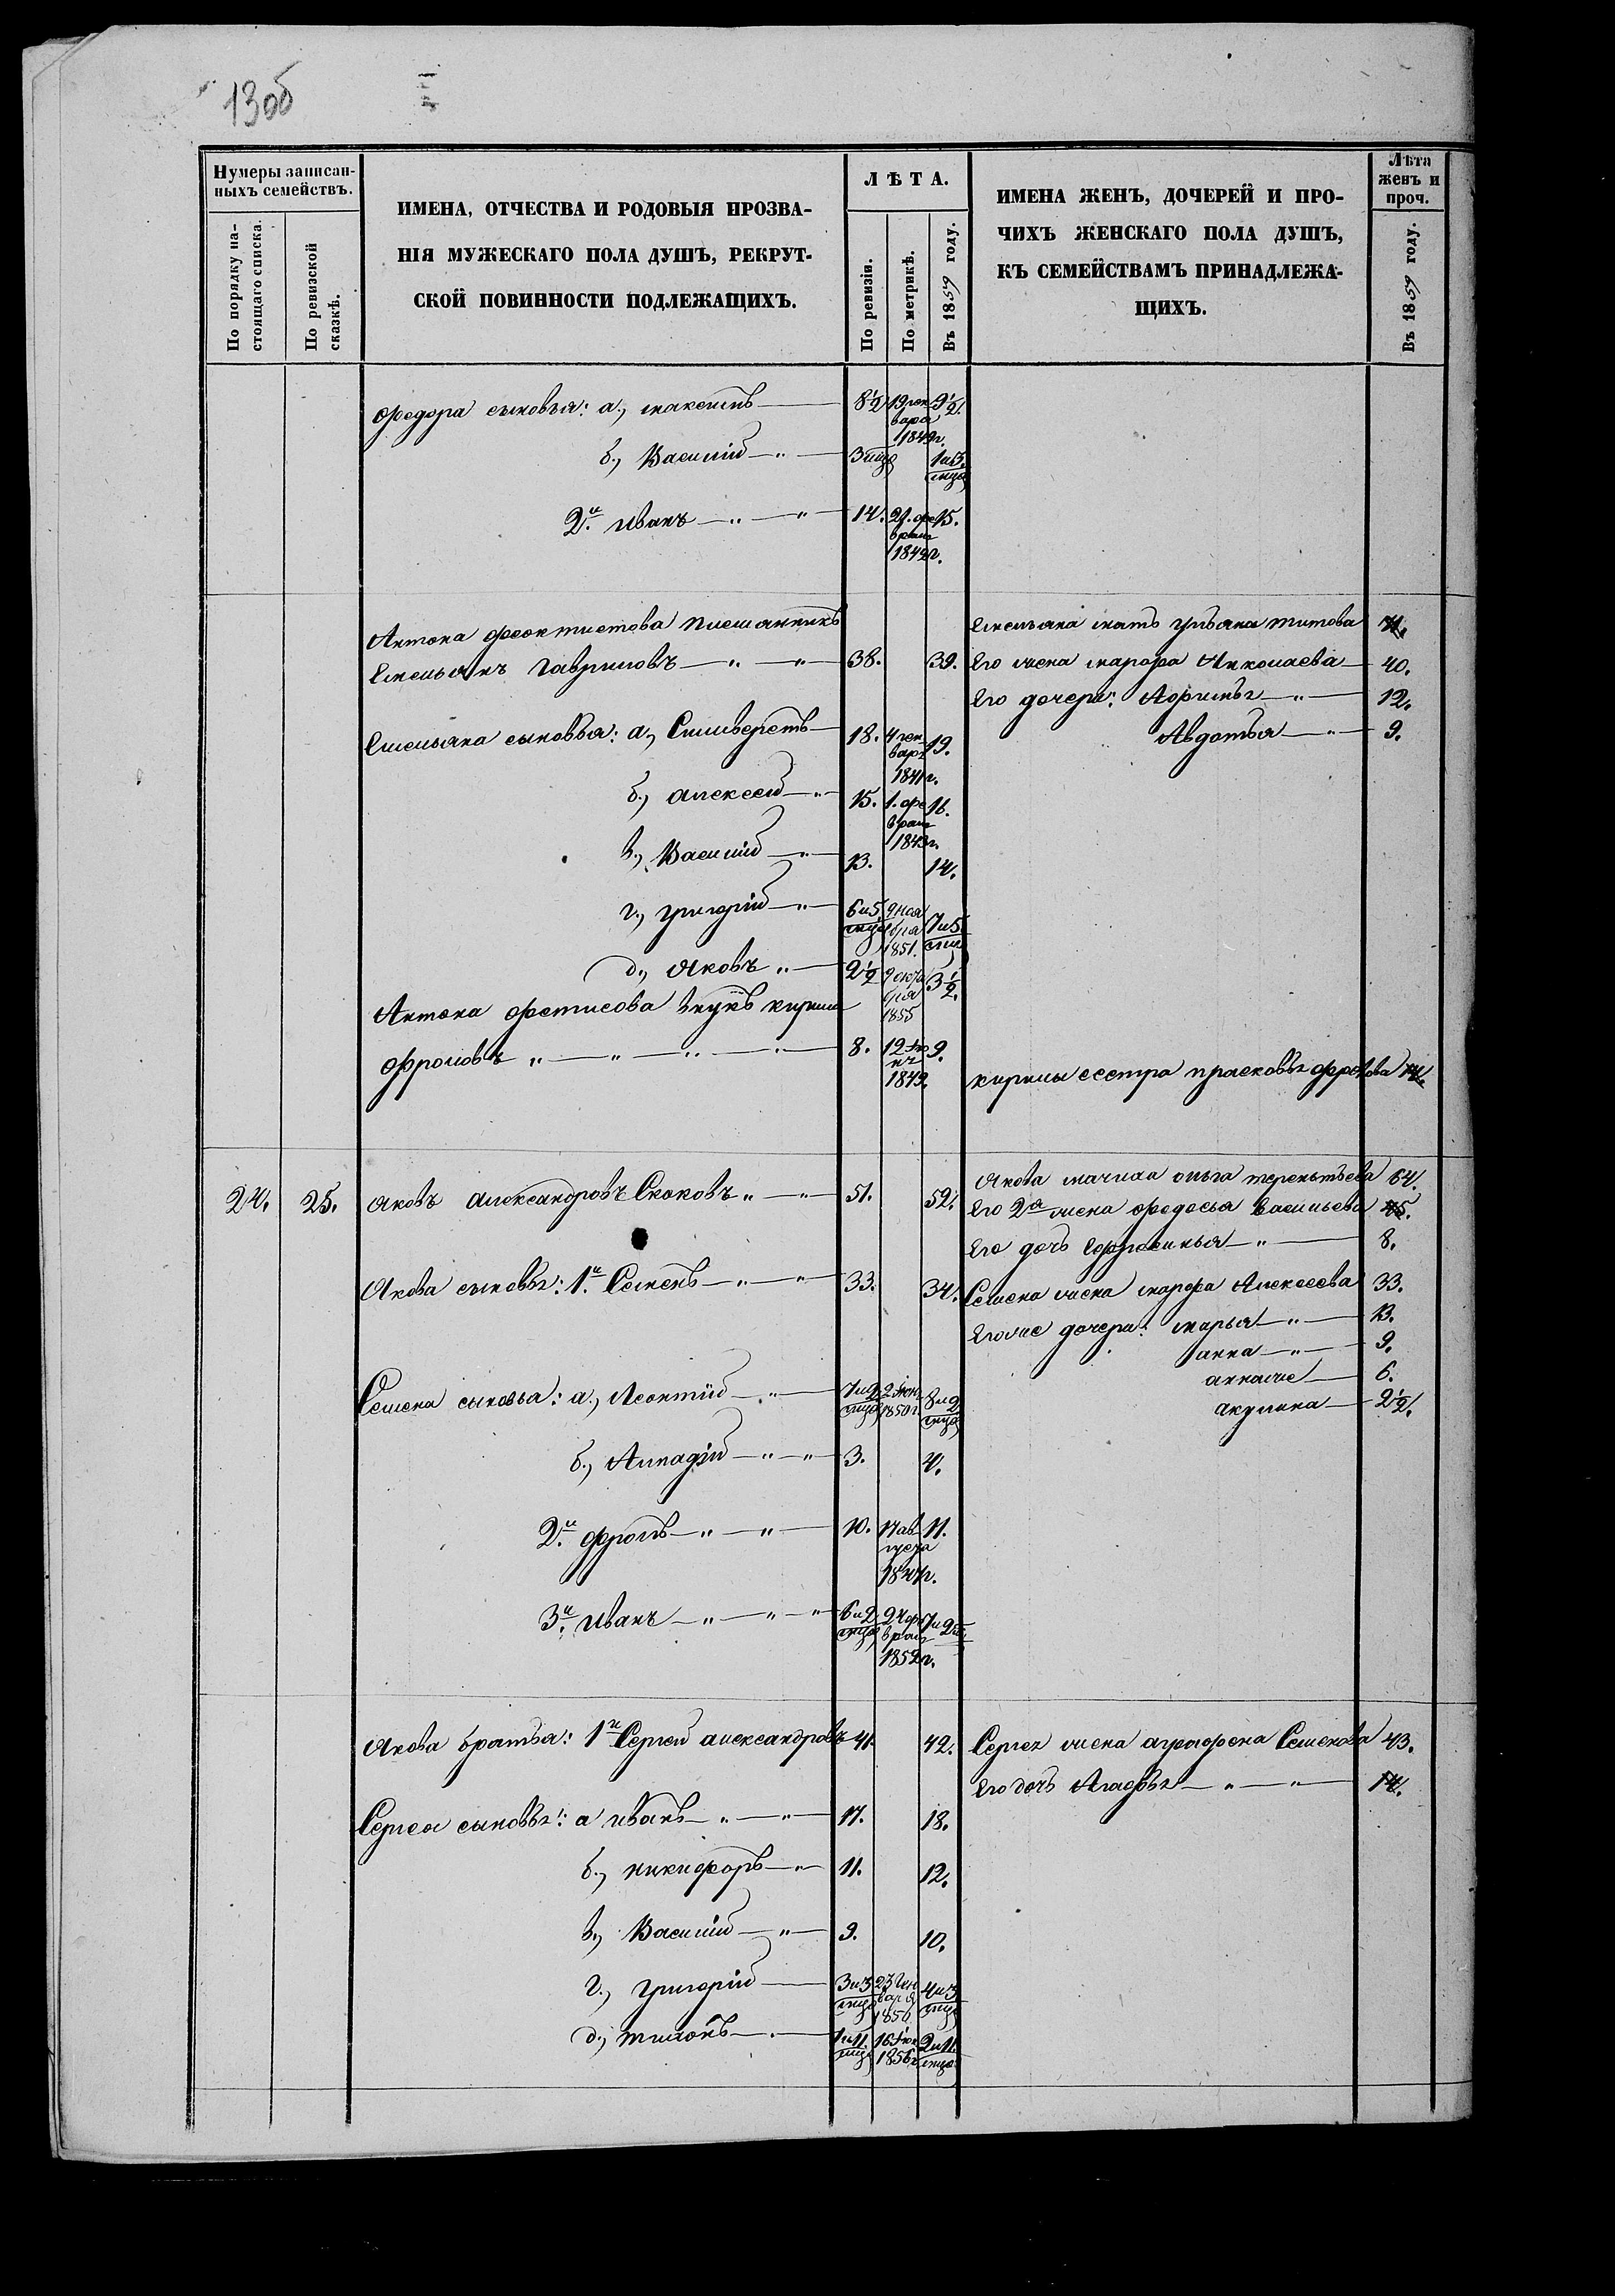 13об
Нумеры записан-
ныхъ семействъ.
По порядку на-
стоящаго списка.
По ревизской
сказкѣ.
ИМЕНА, ОТЧЕСТВА И РОДОВЫЯ ПРОЗВА-
НІЯ МУЖЕСКАГО ПОЛА ДУШЪ, РЕКРУТ-
СКОЙ ПОВИННОСТИ ПОДЛЕЖАЩИХЪ.
ЛѢТА.
По ревизіи.
По метрикѣ.
Въ 1859 году.
ИМЕНА ЖЕНЪ, ДОЧЕРЕЙ И ПРО-
ЧИХЪ ЖЕНСКАГО ПОЛА ДУШЪ,
КЪ СЕМЕЙСТВАМЪ ПРИНАДЛЕЖА-
ЩИХЪ.
Лѣта
женъ и
проч.
Въ 1859 году.
Федора сыновья: а., Максимъ 8½ 19 ген 9½.
варя
1849г.
б., Василій 3 мца 1 и 3.
мцы
2й Иванъ 14. 21. фе 15.
враля
г.
Антона Феоктистова племянникъ
Емельянъ Гавриловъ 38. 39.
Емельяна мать Ульяна Титова 71.
Его жена Марфа Николаева 40.
Его дочери: 12.
Авдотья 9.
Емельяна сыновья: а., Силиверстъ 18. 4 ген 19.
варя
1841г.
б., Алексей 15. 1. фе 16.
враля
1843г.
в., Василій 13. 14.
г., Григорій 6 и 5. 9 ноя 7 и 5.
мцы бря
1851.
д., Яковъ 2½ 9 октя 3½.
бря
1855
Антона Фетисова внукъ Кирила
Фроловъ 8. 12 9.
1849.
Кирилы сестра Прасковья Фролова 14.
24. 25. Яковъ Александровъ Скоковъ 51. 52.
Якова мачиха Ольга Терентьева 64.
Его 2я жена Федосья Васильева 45.
Его дочь Ефросинья 8.
Якова сыновья: 1й Семенъ 33. 34.
Семена жена Марфа Алексеева 33.
Его же дочери: Марья 13.
Анна 9.
Анна же 6.
Акулина 2½.
Семена сыновья: а., Леонтій 7 и 2 2 Июн 8 и 2
мца 1850г. мца
б., 3. 4.
2й Фролъ 10. 17 ав 11.
густа
1847г.
3й Иванъ 6 и 2 24 фе 7 и 2
мца враля
1852г.
Якова братья: 1й Сергей Александровъ 41. 42.
Сергея жена Аграфена Семенова 43.
Его дочь 14.
Сергея сыновья: а Иванъ 17. 18.
б., Никифоръ 11. 12.
в., Василій 9. 10.
г., Григорій 3 и 3 23 Ген 4 и 3
мца варя мца
д., Тихонъ 1 и 11. 16 2 и 11.
мца 1856г. мца